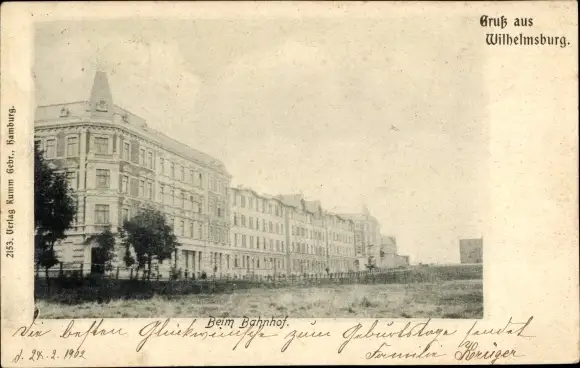 Gruß aus
Wilhelmsburg.
2153. Verlag Rumm Gebr., Hamburg.
Beim Bahnhof.
Die besten Glückwünsche zum Geburtstage sendet
d. 24. 2. 1902 Familie Krüger